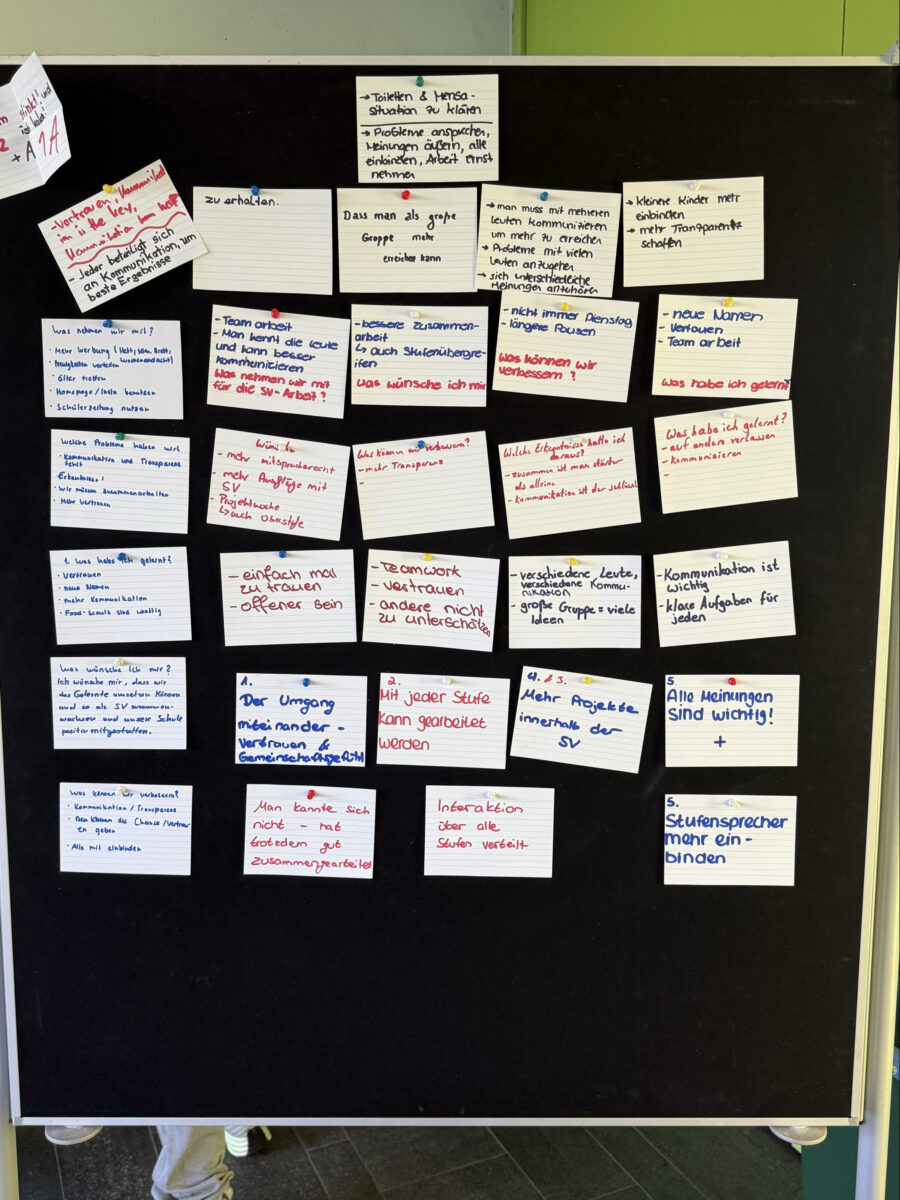 → Toiletten & Mensa-
situation zu klären
→ Probleme ansprechen,
Meinungen äußern, alle
einbinden, Arbeit ernst
nehmen
stinkt! und
2
+ A 1A
- Vertrauen, Kommunikation
is the key,
Kommunikation kann
- Jeder beteiligt sich
an Kommunikation, um
beste Ergebnisse
zu erhalten.
Dass man als große
Gruppe mehr
erreichen kann
→ man muss mit mehreren
Leuten Kommunizieren
um mehr zu erreichen
→ Probleme mit vielen
Leuten anzugehen
→ sich unterschiedliche
Meinungen anzuhören
→ kleinere Kinder mehr
einbinden
→ mehr Transparents
schaffen
Was nehmen wir mit?
• Mehr Werbung (Heft, schw. Brett,
• Neuigkeiten verteilen
• öfter treffen
• Homepage/Insta benutzen
• Schülerzeitung nutzen
- Team arbeit
- Man kennt die leute
und kann besser
kommunizieren
Was nehmen wir mit
für die SV-Arbeit?
- bessere Zusammen-
arbeit
↳ auch Stufenübergre-
ifen
Was wünsche ich mir
- nicht immer Dienstag
- längere Pausen
Was können wir
verbessern?
- neue Namen
- Vertauen
- Team arbeit
Was habe ich gelernt?
Welche Probleme haben wir?
• Kommunikation und Transparenz
fehlt
Erkenntnisse:
• Wir müssen zusammenarbeiten
• Mehr vertrauen
- mehr mitspracherecht
- mehr Ausflüge mit
SV
- Projektwoche
↳ auch Oberstufe
Was können wir verbessern?
- mehr Transparenz
-
Welche Erkenntniss hatte ich
daraus?
- zusammen ist man stärker
als alleine
- kommunikation ist der schlüssel
Was habe ich gelernt?
- auf andere verlassen
- kommunizieren
-
1. Was habe ich gelernt?
• Vertrauen
• neue Namen
• mehr Kommunikation
• Food-Scouts sind wichtig
- einfach mal
zu trauen
- offener sein
- Teamwork
- vertrauen
- andere nicht
zu unterschätzen
- verschiedene Leute,
verschiedene Kommu-
nikation
- große Gruppe = viele
Ideen
- Kommunikation ist
wichtig
- klare Aufgaben für
jeden
Was wünsche ich mir?
Ich wünsche mir, dass wir
das Gelernte umsetzen können
und so als SV zusammen-
wachsen und unsere Schule
positiv mitgestalten.
1.
Der Umgang
miteinander -
Vertrauen &
Gemeinschaftsgefühl
2.
Mit jeder Stufe
kann gearbeitet
werden
4. & 3.
Mehr Projekte
innerhalb der
SV
5.
Alle Meinungen
sind wichtig!
+
Was können wir verbessern?
• Kommunikation/Transparenz
• Den kleinen die Chance/Vertrau-
en geben
• Alle mit einbinden
Man kannte sich
nicht - hat
trotzdem gut
zusammengearbeitet
Interaktion
über alle
Stufen verteilt
5.
Stufensprecher
mehr ein-
binden